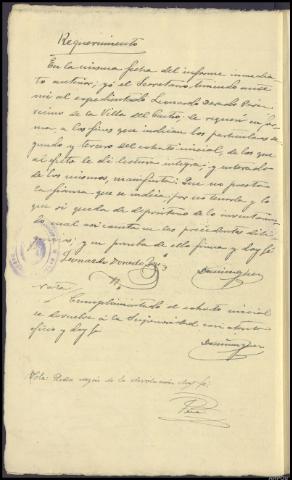 Requerimiento
En la misma fecha del informe inmedia
to anterior, yó el Secretario teniendo ante
mi al expedientado Leonardo Dorado
cino de la Villa del lo requerí en for
ma, a los fines que indican los particulares se
gundo y tercero del exhorto inicial, de los que
al efecto le di lectura integra; y enterado
de los mismos, manifestó: Que no presta
la fianza que se indica, por no tenerla y lo
que si queda de depositario de lo inventariado
lo cual así consta en las precedentes dili
y en prueba de ello firma y doy fé
Leonardo Dorado
Domínguez
Nota
Cumplimentado el exhorto inicial
se devuelve á la Superioridad con atento
oficio y doy fé
Domínguez
Nota: razón de la devolución doy fé